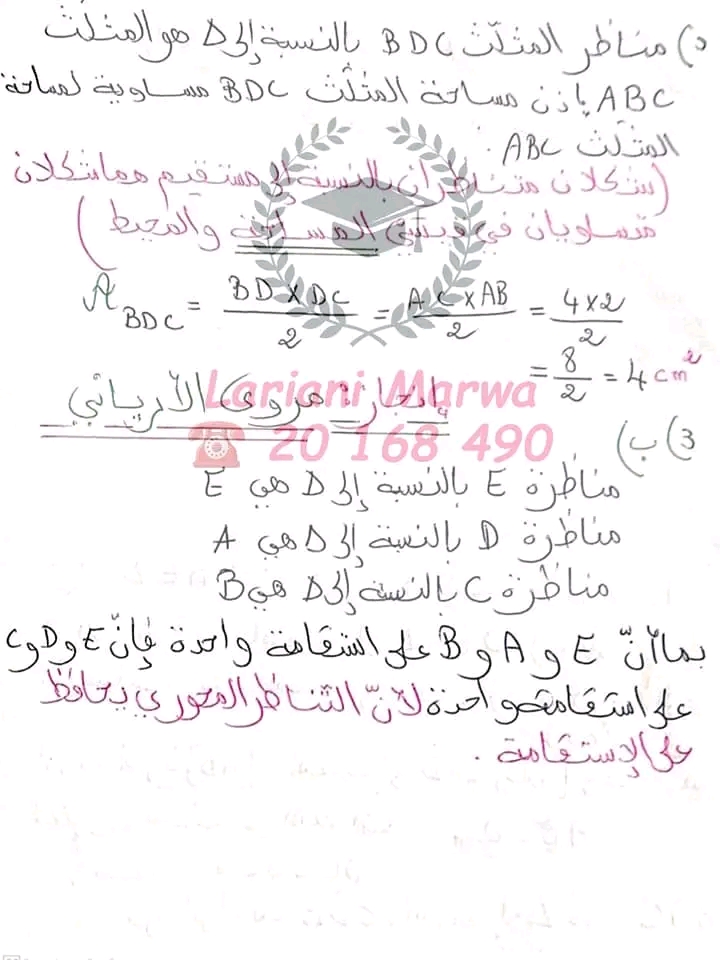 د) مناظر المثلّث BDC بالنسبة إلى Δ هو المثلث
ABC إذن مساحة المثلث BDC مساوية لمساحة
المثلث ABC.
(شكلان متناظران بالنسبة إلى مستقيم هما شكلان
متساويان في قيستي المساحة والمحيط)
A BDC = BD×DC / 2 = AC×AB / 2 = 4×2 / 2
= 8/2 = 4 cm²
إنجاز: مروى الأرياني
Lariani Marwa
☎ 20 168 490
3) ب)
مناظرة E بالنسبة إلى Δ هي E
مناظرة D بالنسبة إلى Δ هي A
مناظرة C بالنسبة إلى Δ هي B
بما أنّ E و A و B على استقامة واحدة فإنّ E و D و C
على استقامة واحدة لأنّ التناظر المحوري يحافظ
على الإستقامة.